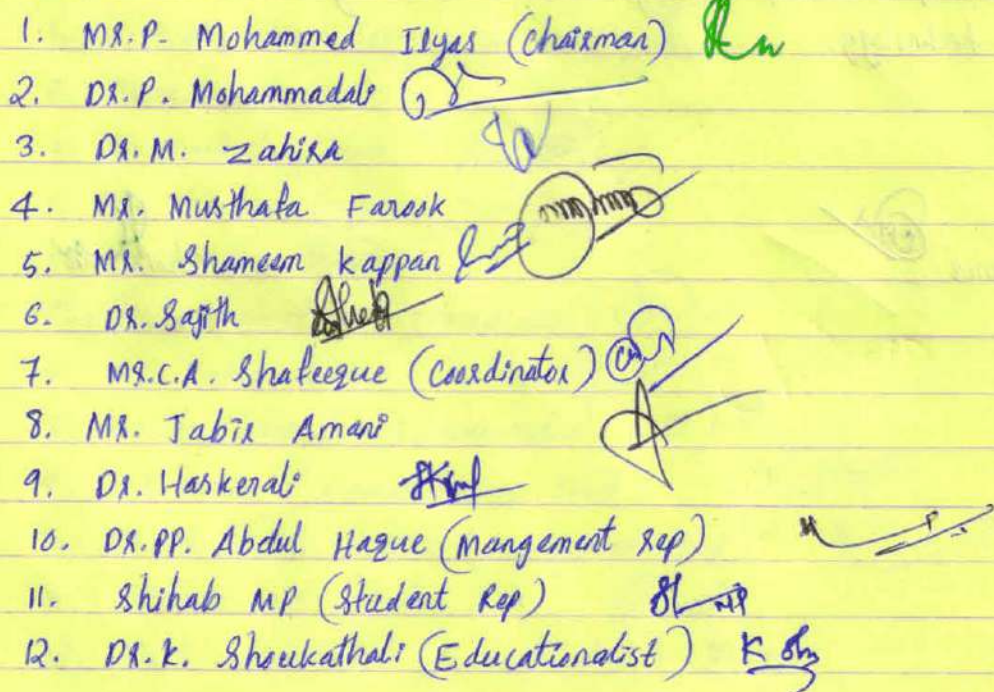 1. Mr. P. Mohammed Ilyas (Chairman)
2. Dr. P. Mohammadali
3. Dr. M. Zahira
4. Mr. Musthafa Farook
5. Mr. Shameem kappan
6. Dr. Sajith
7. Mr. C.A. Shafeeque (Coordinator)
8. Mr. Jabir Amani
9. Dr. Haskerali
10. Dr. PP. Abdul Haque (Mangement rep)
11. Shihab MP (Student Rep)
12. Dr. K. Shoukathali (Educationalist)